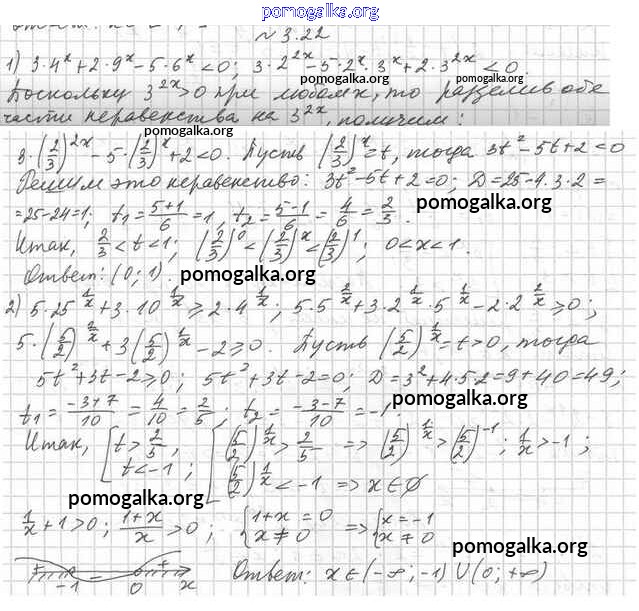 pomogalka.org
N 3.22
1) 3·4^x+2·9^x-5·6^x<0; 3·2^{2x}-5·2^x·3^x+2·3^{2x}<0.
pomogalka.org
Поскольку 3^{2x}>0 при любом x, то разделив обе
части неравенства на 3^{2x}, получим:
pomogalka.org
3·(2/3)^{2x}-5·(2/3)^x+2<0. Пусть (2/3)^x=t, тогда 3t^2-5t+2<0
Решим это неравенство: 3t^2-5t+2=0; D=25-4·3·2=
=25-24=1; t_1=(5+1)/6=1, t_2=(5-1)/6=4/6=2/3.
pomogalka.org
Итак, 2/3<t<1; (2/3)^0<(2/3)^x<(2/3)^1; 0<x<1.
Ответ: (0; 1).
pomogalka.org
2) 5·25^{1/x}+3·10^{1/x}≥2·4^{1/x}; 5·5^{2/x}+3·2^{1/x}·5^{1/x}-2·2^{2/x}≥0;
5·(5/2)^{2/x}+3(5/2)^{1/x}-2≥0. Пусть (5/2)^{1/x}=t>0, тогда
5t^2+3t-2≥0; 5t^2+3t-2=0; D=3^2+4·5·2=9+40=49;
t_1=(-3+7)/10=4/10=2/5; t_2=(-3-7)/10=-1.
pomogalka.org
Итак, [t>2/5, t<-1; [(5/2)^{1/x}>2/5 => (5/2)^{1/x}>(5/2)^{-1}; 1/x>-1;
(5/2)^{1/x}<-1 => x∈∅
pomogalka.org
1/x+1>0; (1+x)/x>0; {1+x=0 x≠0 => {x=-1 x≠0
pomogalka.org
+ -1 - 0 + x Ответ: x∈(-∞;-1)∪(0;+∞)